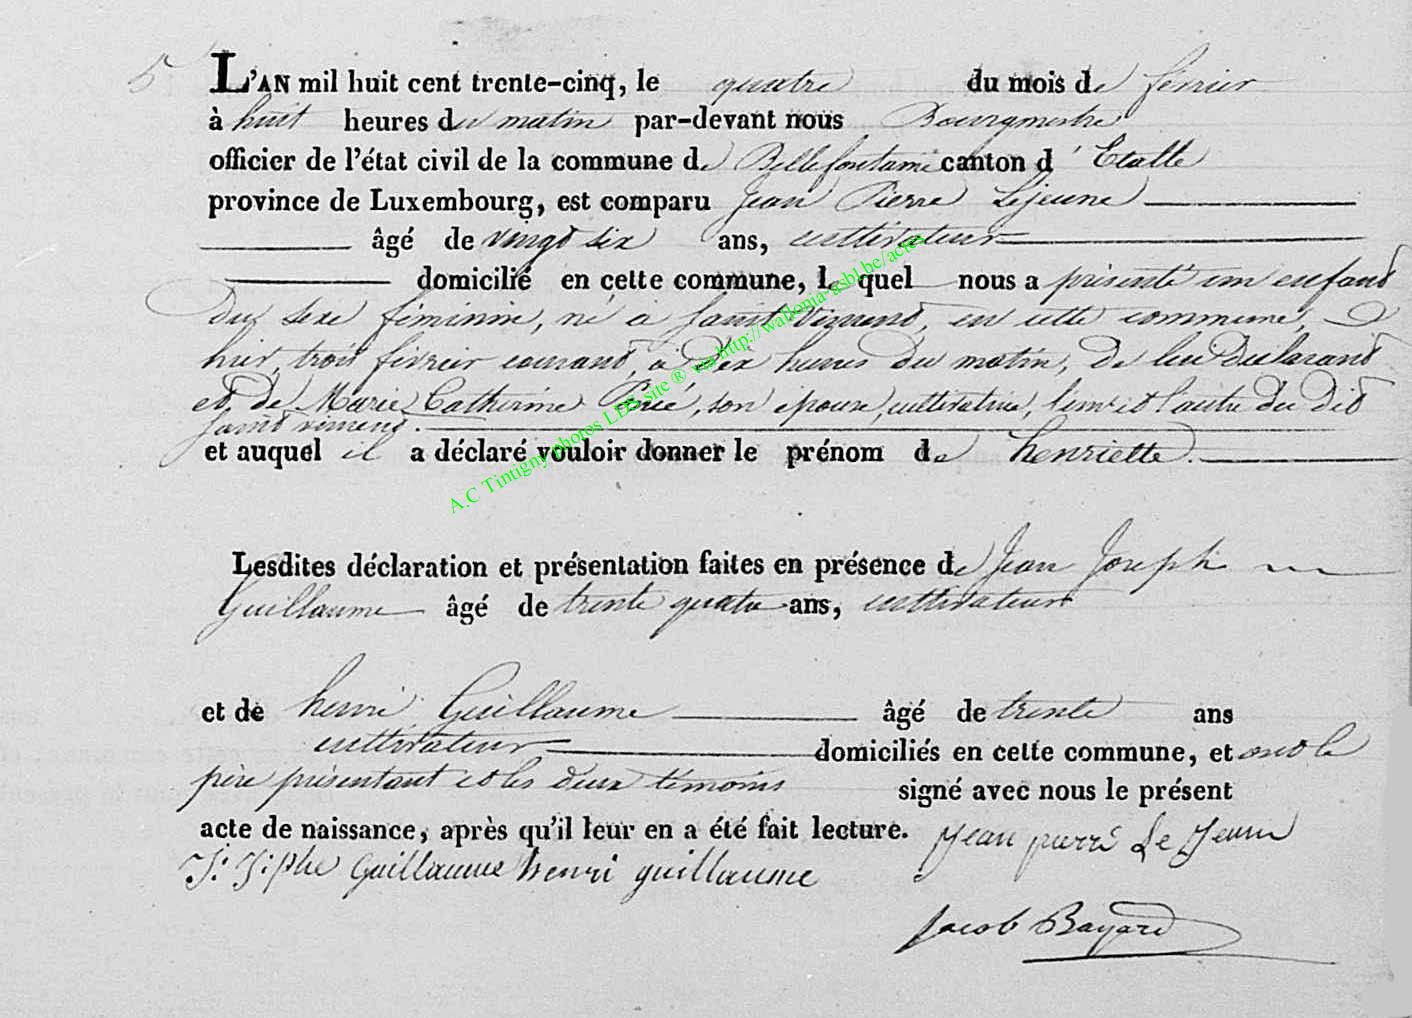 5 L'AN mil huit cent trente-cinq, le quatre du mois de février
à huit heures du matin par-devant nous Bourgmestre
officier de l'état civil de la commune de Bellefontaine canton d'Etalle
province de Luxembourg, est comparu Jean Pierre Lejeune
âgé de vingt six ans, cultivateur
domicilié en cette commune, Lequel nous a présenté un enfant
du sexe féminin, né à Saint Vincent, en cette commune,
hier, trois février courant, à dix heures du matin, de lui déclarant
et de Marie Catherine, son épouse, cultivatrice, l'un et l'autre du dit
Saint vincent.
et auquel il a déclaré vouloir donner le prénom de henriette.
Lesdites déclaration et présentation faites en présence de Jean Joseph
Guillaume âgé de trente quatre ans, cultivateur
et de henri Guillaume âgé de trente ans
cultivateur domiciliés en cette commune, et ont le
père présentant et les deux témoins signé avec nous le présent
acte de naissance, après qu'il leur en a été fait lecture. Jean pierre Le Jeune
J: J:phe Guillaume henri guillaume
Jacob Bayard
A.C Tintigny photos LDS site ® via http://wallonia-asbl.be/actes